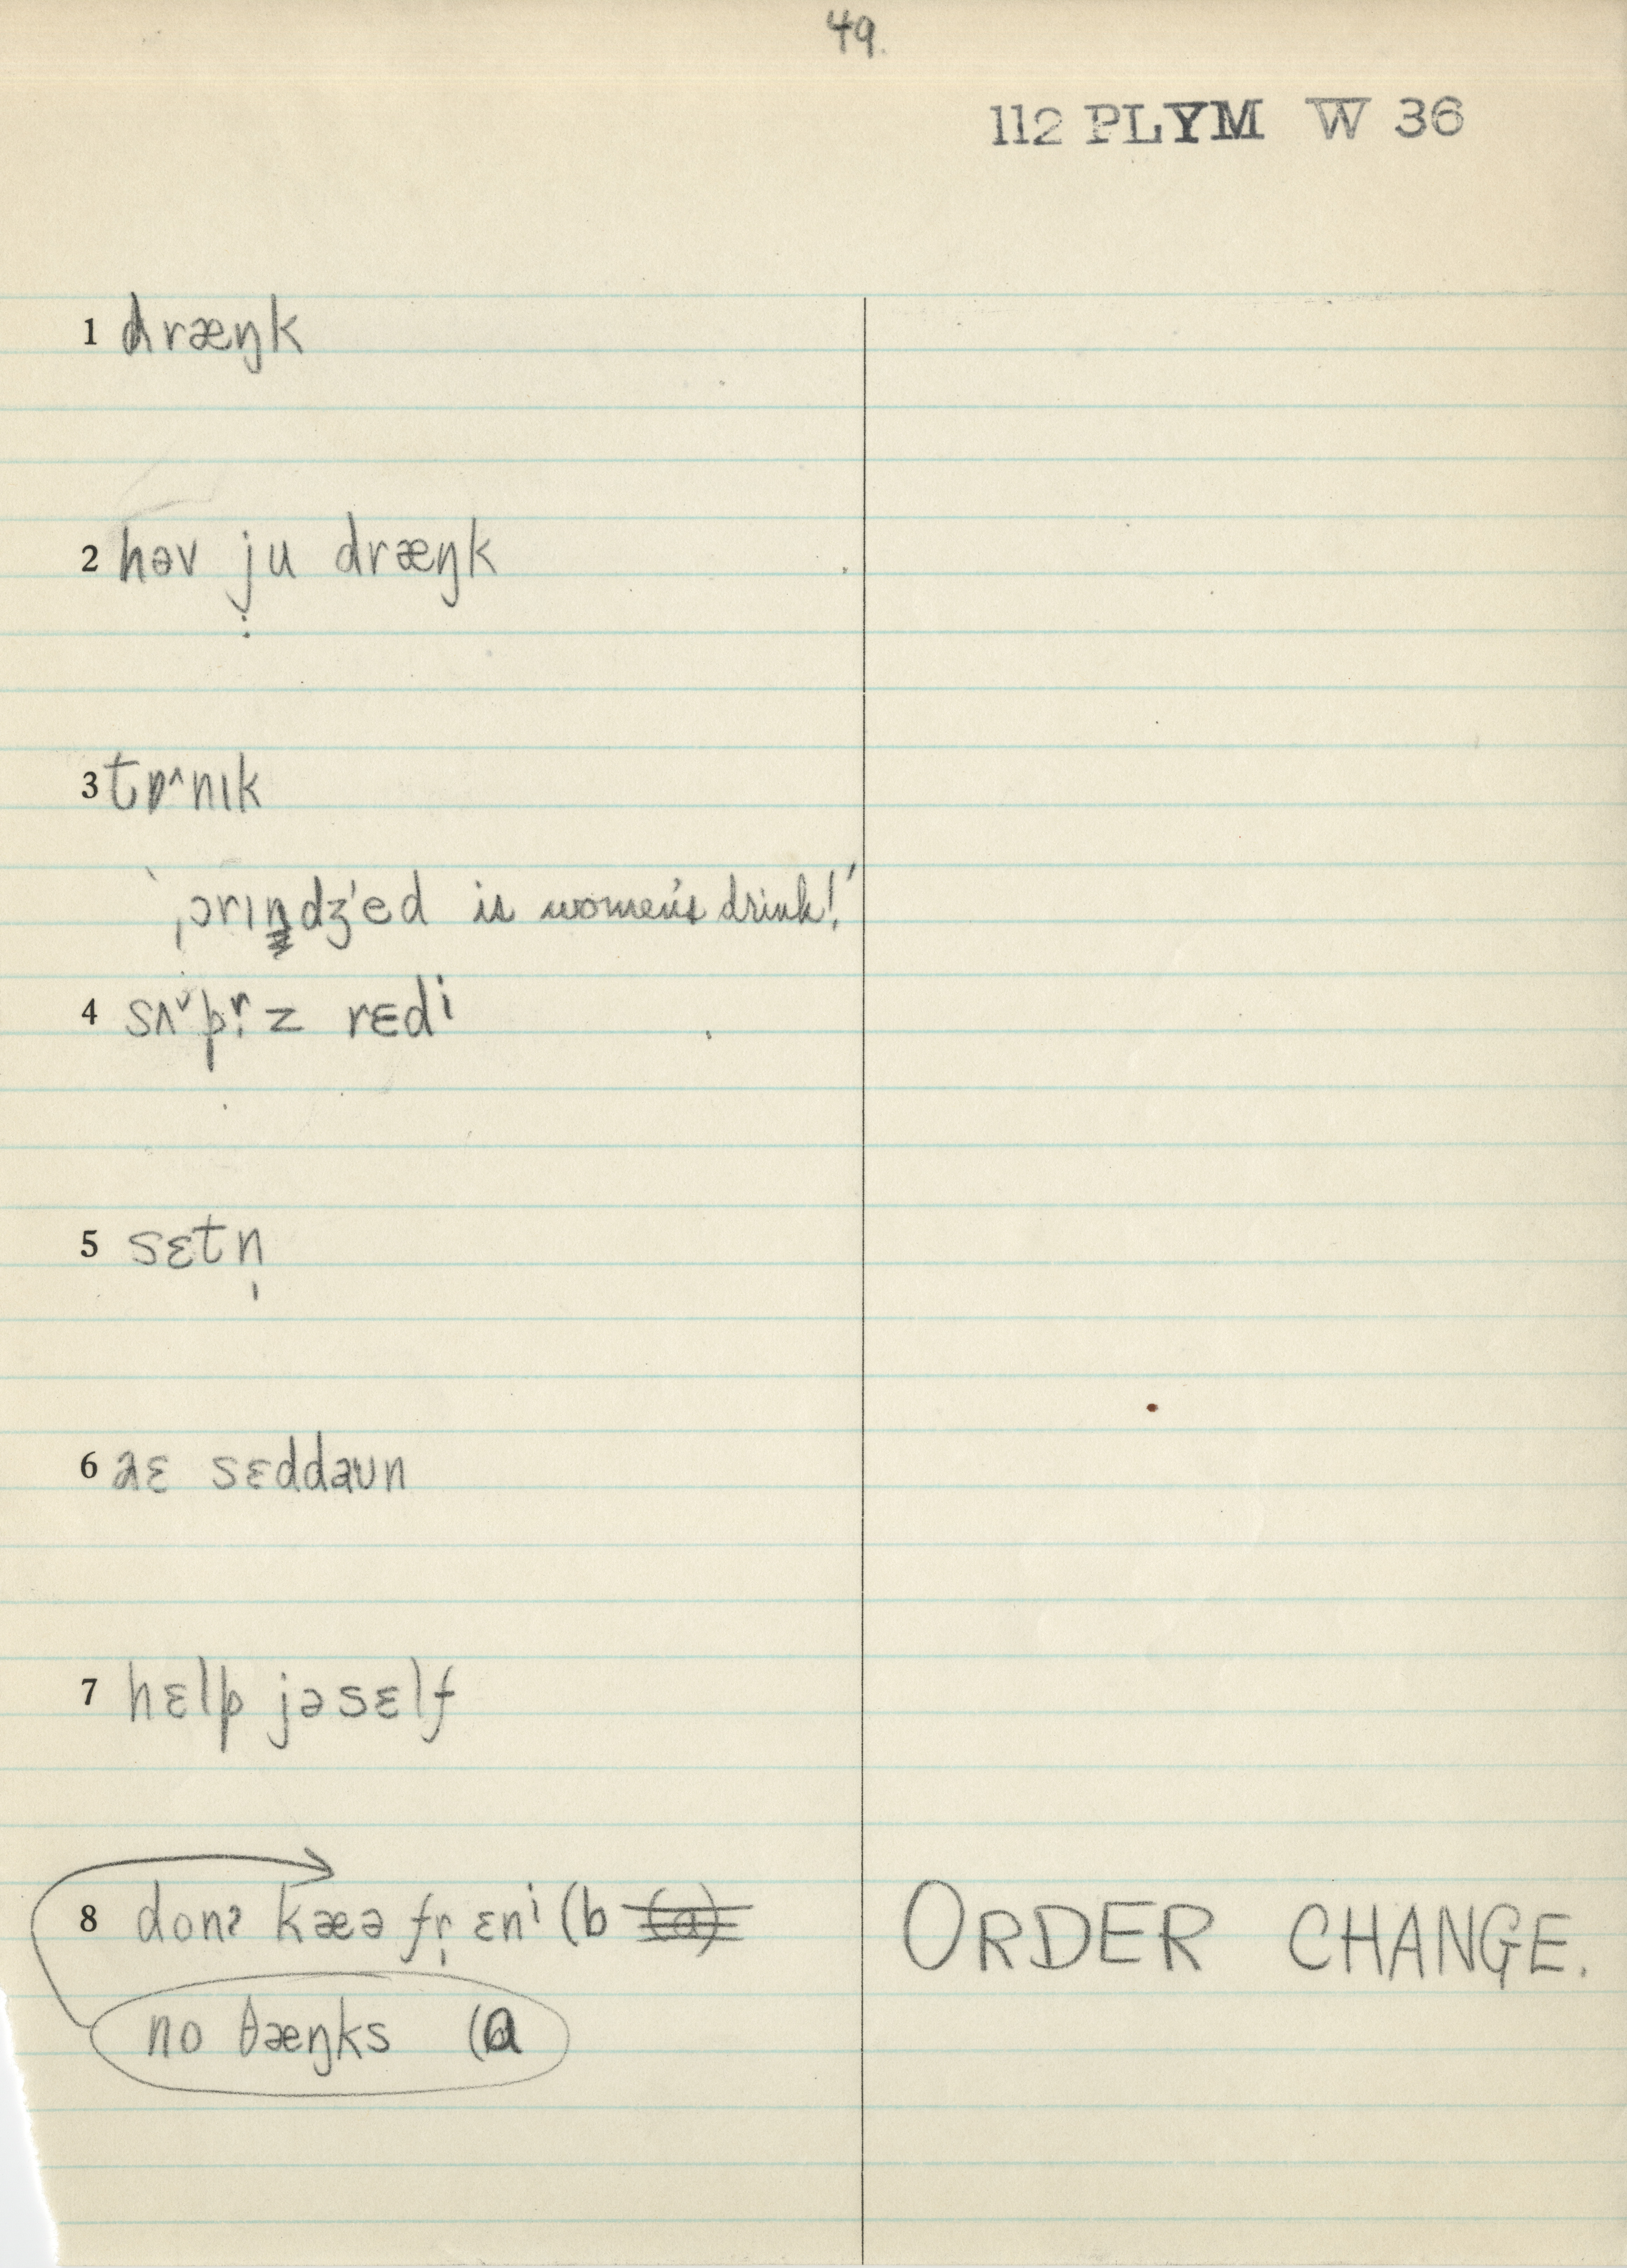 49.
112 PLYM W 36
1 dræŋk
2 həv j̣u dræŋk
3 tɒ^nɪk
'ˌɔrɪndʒ'ed is women's drink!'
4 sʌ˅pr̩z rɛdⁱ
5 sɛtn̩
6 aɛ sɛddaʊn
7 hɛlp jəsɛlf
8 donʔ kæə fr̩ ɛnⁱ (b (a)
ORDER CHANGE.
no θæŋks (a